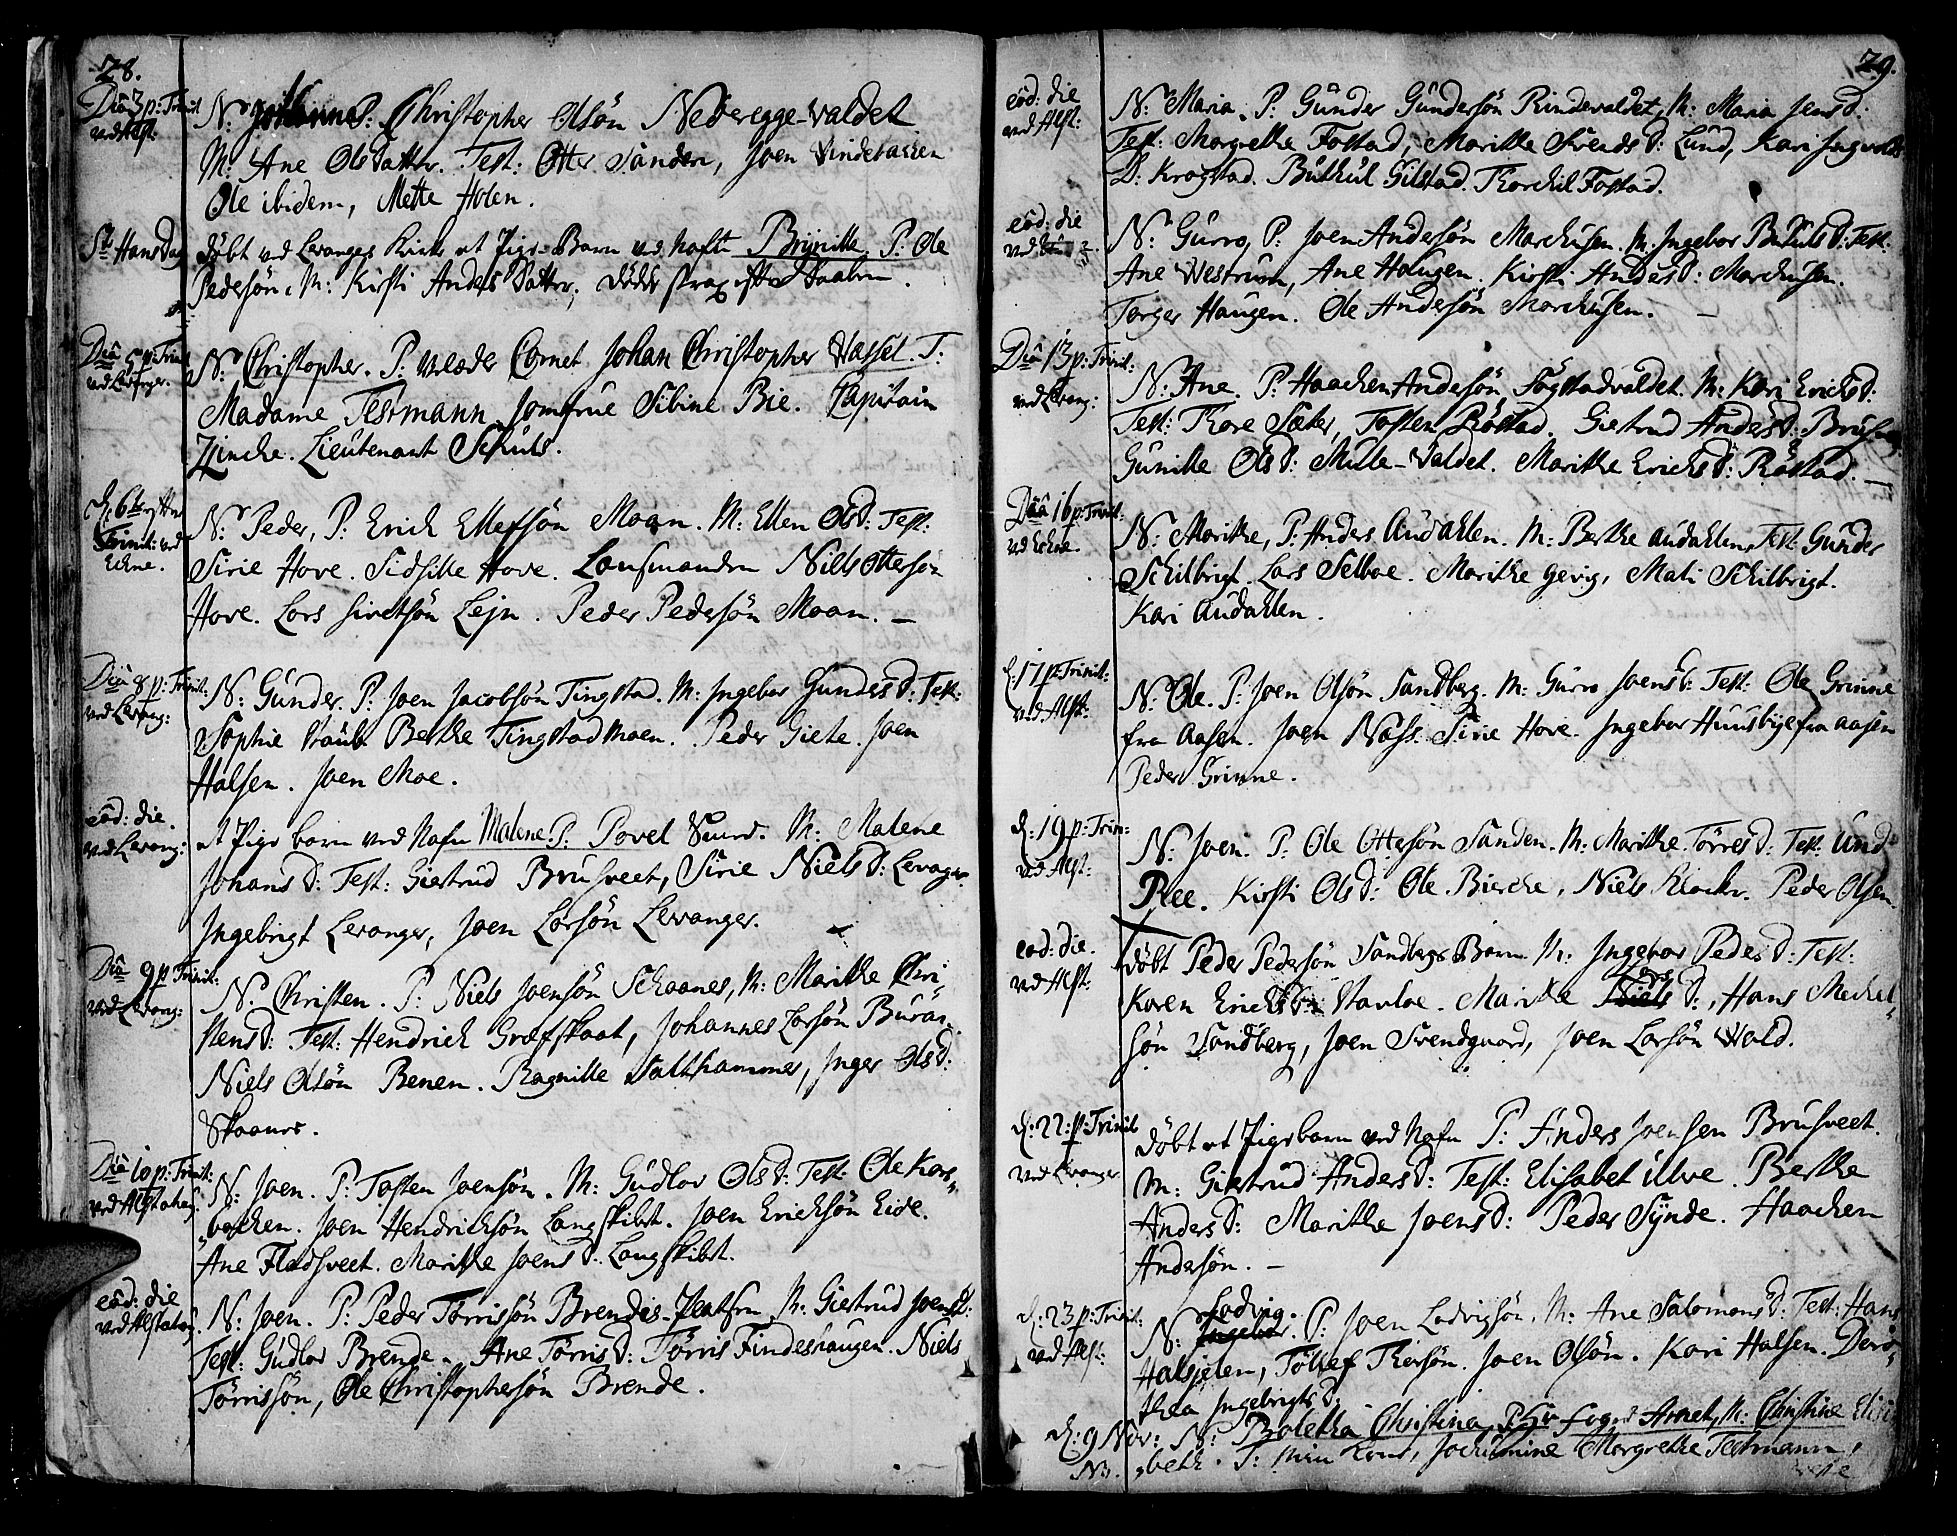 28.
Dīa 3 p: Trinit
ved Alst:
N: Johanna P: Christopher Olsön Nederegge-valdet
M: Ane Olsdatter. Test: Otter Sanden, Joen Vindebacken
Ole ibidem, Mette Holen.
St Hansdag
döbt ved Levangers Kirke et Pige-Barn ved nafn Brynille P: Ole
Pedersön. M: Kirsti Anders datter, döde strax efter Daaben.
Dīa 5 p: Trinit
ved Levanger.
N: Christopher. P: velæder Cornet Johan Christopher Vassel. T:
Madame Testmann Jomfrue Sibine Bie. Capitain
Zincke. Lieutenant Schuls.
D: 6te
Trinit: ved
Echne.
N: Peder, P: Erich Ellefsön Moan. M: Ellen Olsd: Test:
Sirie Hove. Sidselle Hove. Laufmanden Niels Ottesön
Hove. Lars Sivertsön Lejn. Peder Pedersön Moan. —
Dīa 8 p: Trinit:
ved Levang:
N: Gunder. P: Joen Jacobsön Tingstad. M: Ingebor Gundersd: Test:
Sophie Straub Berthe Tingstadmoen. Peder Giete. Joen
Halsen. Joen Moe.
eod: die.
ved Levang:
et Pige barn ved Nafn Malene P: Povel Suurd. M: Malene
Johansd: Test: Giertrud Brusveet, Sirie Nielsd: Levanger.
Ingebrigt Levanger, Joen Larsön Levanger.
Dīa 9 p Trinit:
ved Levang:
N: Christen. P: Niels Joensön Schaanes, M: Marithe Chri-
stensd: Test: Hendrich Græfskaat, Johannes Larsön Buraas.
Niels Olsön Benem. Ragnille Salthammer, Inger Olsd:
Skaanes.
Dīa 10 p: Trinit:
ved Alstahoug.
N: Joen. P: Tosten Joensön. M: Gudlov Olsd: Test: Ole Kors-
bacchen. Joen Hendrichsön Langskibt. Joen Erichsön Eide.
Ane Fladsveet. Marithe Joensd: Langskibt.
eod: die
ved Alstahoug.
N: Joen. P: Peder Torrissön Brendes-Pladsen, M: Giertrud Joensd:
Test: Gudlov Brende. Ane Torrisd: Torris Findeshaugen. Niels
Torrissön, Ole Christophersön Brende.
29.
eod: die
ved Alst:
N: Maria. P: Gunder Gundersön Rindevaldet, M: Maria Jensd:
Test: Margrethe Fostad, Marithe Svendsd: Lund, Kari Ingvolds
D: Krogstad. Buthul Gilstad. Thorchil Fostad.
eod: die
ved
N: Gurro, P: Joen Andersön Marchusen. M: Ingebor Buthulsd: Test:
Ane Westrum, Ane Haugen. Kirsti Andersd: Marchusen.
Torger Haugen. Ole Andersön Marchusen. —
Dīa 13 p: Trinit:
ved Levang:
N: Ane. P: Haachen Andersön Fogstadvaldet. M: Kari Erichsd:
Test: Thore Sæter, Tosten Röstad. Giertrud Andersd: Brusveet
Gunille Olsd: Mulle-Valdet. Marithe Erichsd: Röstad. —
Dīa 16 p: Trinit:
ved Echne.
N: Marithe, P: Anders Audahlen. M: Berthe audahlen, Test: Gunder
Schilbrigt. Lars Selboe. Marithe Gevig, Mali Schilbrigt.
Kari Audahlen.
D: 17 p: Trinit:
ved Alst:
N: Ole. P: Joen Olsön Sandberg. M: Gurro Joensd: Test: Ole Grinne
fra Aasen. Joen Næss. Sirie Hove. Ingebor Huusbye fra aasen
Peder Grinne.
D: 19 p: Trin:
ved Alst:
N: Joen. P: Ole Ottesön Sanden. M: Marithe Törresd: Test: Und-
Ree. Kirsti Olsd: Ole Bierche, Niels Klocker. Peder Olsen.
eod: die.
ved Alst:
döbt Peder Pedersön Sandbergs Barn M: Ingebor Pedersd: Test:
Karen Erichsd: Stavloe. Marithe Larsd:, Hans Mechel-
sön Sandberg, Joen Svendgaard, Joen Larsön Wold.
D: 22: p: Trinit
ved Levanger
döbt et Pigebarn ved Nafn P: Anders Joensen Brusveet.
M: Giertrud Andersd: Test: Elisabet Ulve. Berthe
Andersd: Marithe Joensd: Peder Synde. Haachen
Andersön. —
D: 23 p: Trinit:
ved Alst:
N: Lodvig. P: Joen Lodvigsön, M: Ane Salomonsd: Test: Hans
Halsjelen, Tollef Thorsön. Joen Olsön. Kari Halsen. Doro-
thea Ingebrigtsd:
D: 9 Nov:
NB.
N: Boletha Christina P: Hr Fogd Arnet, M: Christine Elisa-
beth. T: min Kone, Jochumine Margrethe Testmann,